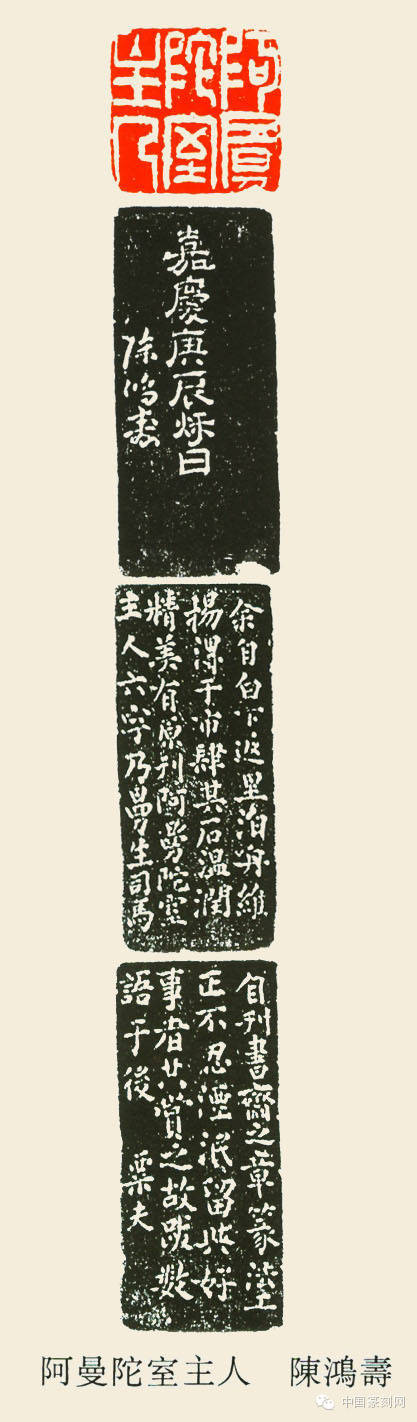 阿曼
陀室
主人
嘉慶庚辰秌日
陳鴻壽
余自白下返里泊舟維
揚得于市肆其石温潤
精美有原刊阿曼陀室
主人六字乃曼生司馬
自刊書齋之章篆
正不忍湮泯留此好
事者共賞之故跋數
語于後 栗夫
阿曼陀室主人 陳鴻壽
中国篆刻网